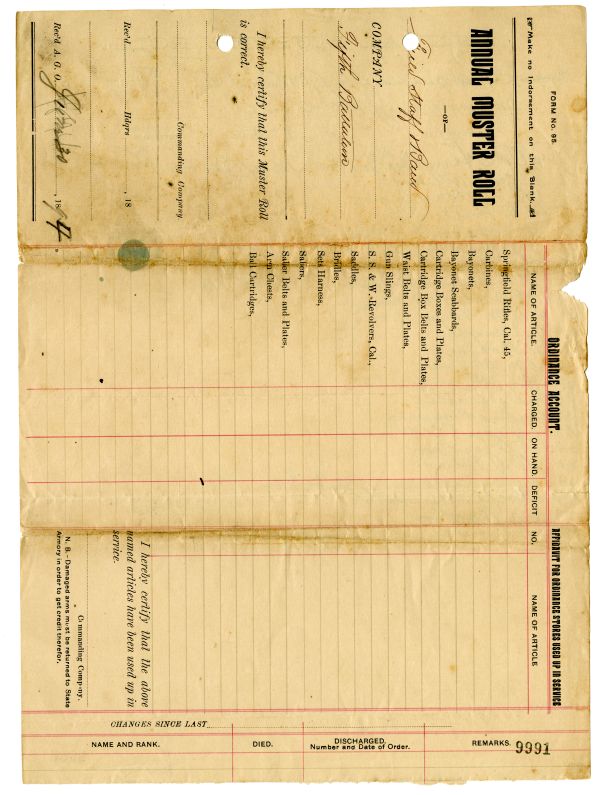 FORM No. 95
Make no Indorsement on this Blank.
ANNUAL MUSTER ROLL
—OF—
Field Staff & Band
COMPANY
Fifth Battalion
I hereby certify that this Muster Roll
is correct.
Commanding Company
Rec'd Hdqrs , 18
Rec'd A. G. O. , 18
ORDINANCE ACCOUNT.
NAME OF ARTICLE. CHARGED. ON HAND. DEFICIT
Springfield Rifles, Cal. 45,
Carbines,
Bayonets,
Bayonet Scabbards,
Cartridge Boxes and Plates,
Cartridge Box Belts and Plates,
Waist Belts and Plates,
Gun Slings,
S. S. & W. Revolvers, Cal.,
Saddles,
Bridles,
Sets Harness,
Sabers,
Saber Belts and Plates,
Arm Chests,
Ball Cartridges,
AFFIDAVIT FOR ORDINANCE STORES USED UP IN SERVICE
NO. NAME OF ARTICLE
I hereby certify that the above
named articles have been used up in
service.
Commanding Company.
N. B.—Damaged arms must be returned to State
Armory in order to get credit therefor.
CHANGES SINCE LAST
NAME AND RANK. DIED. DISCHARGED. REMARKS.
Number and Date of Order.
9991